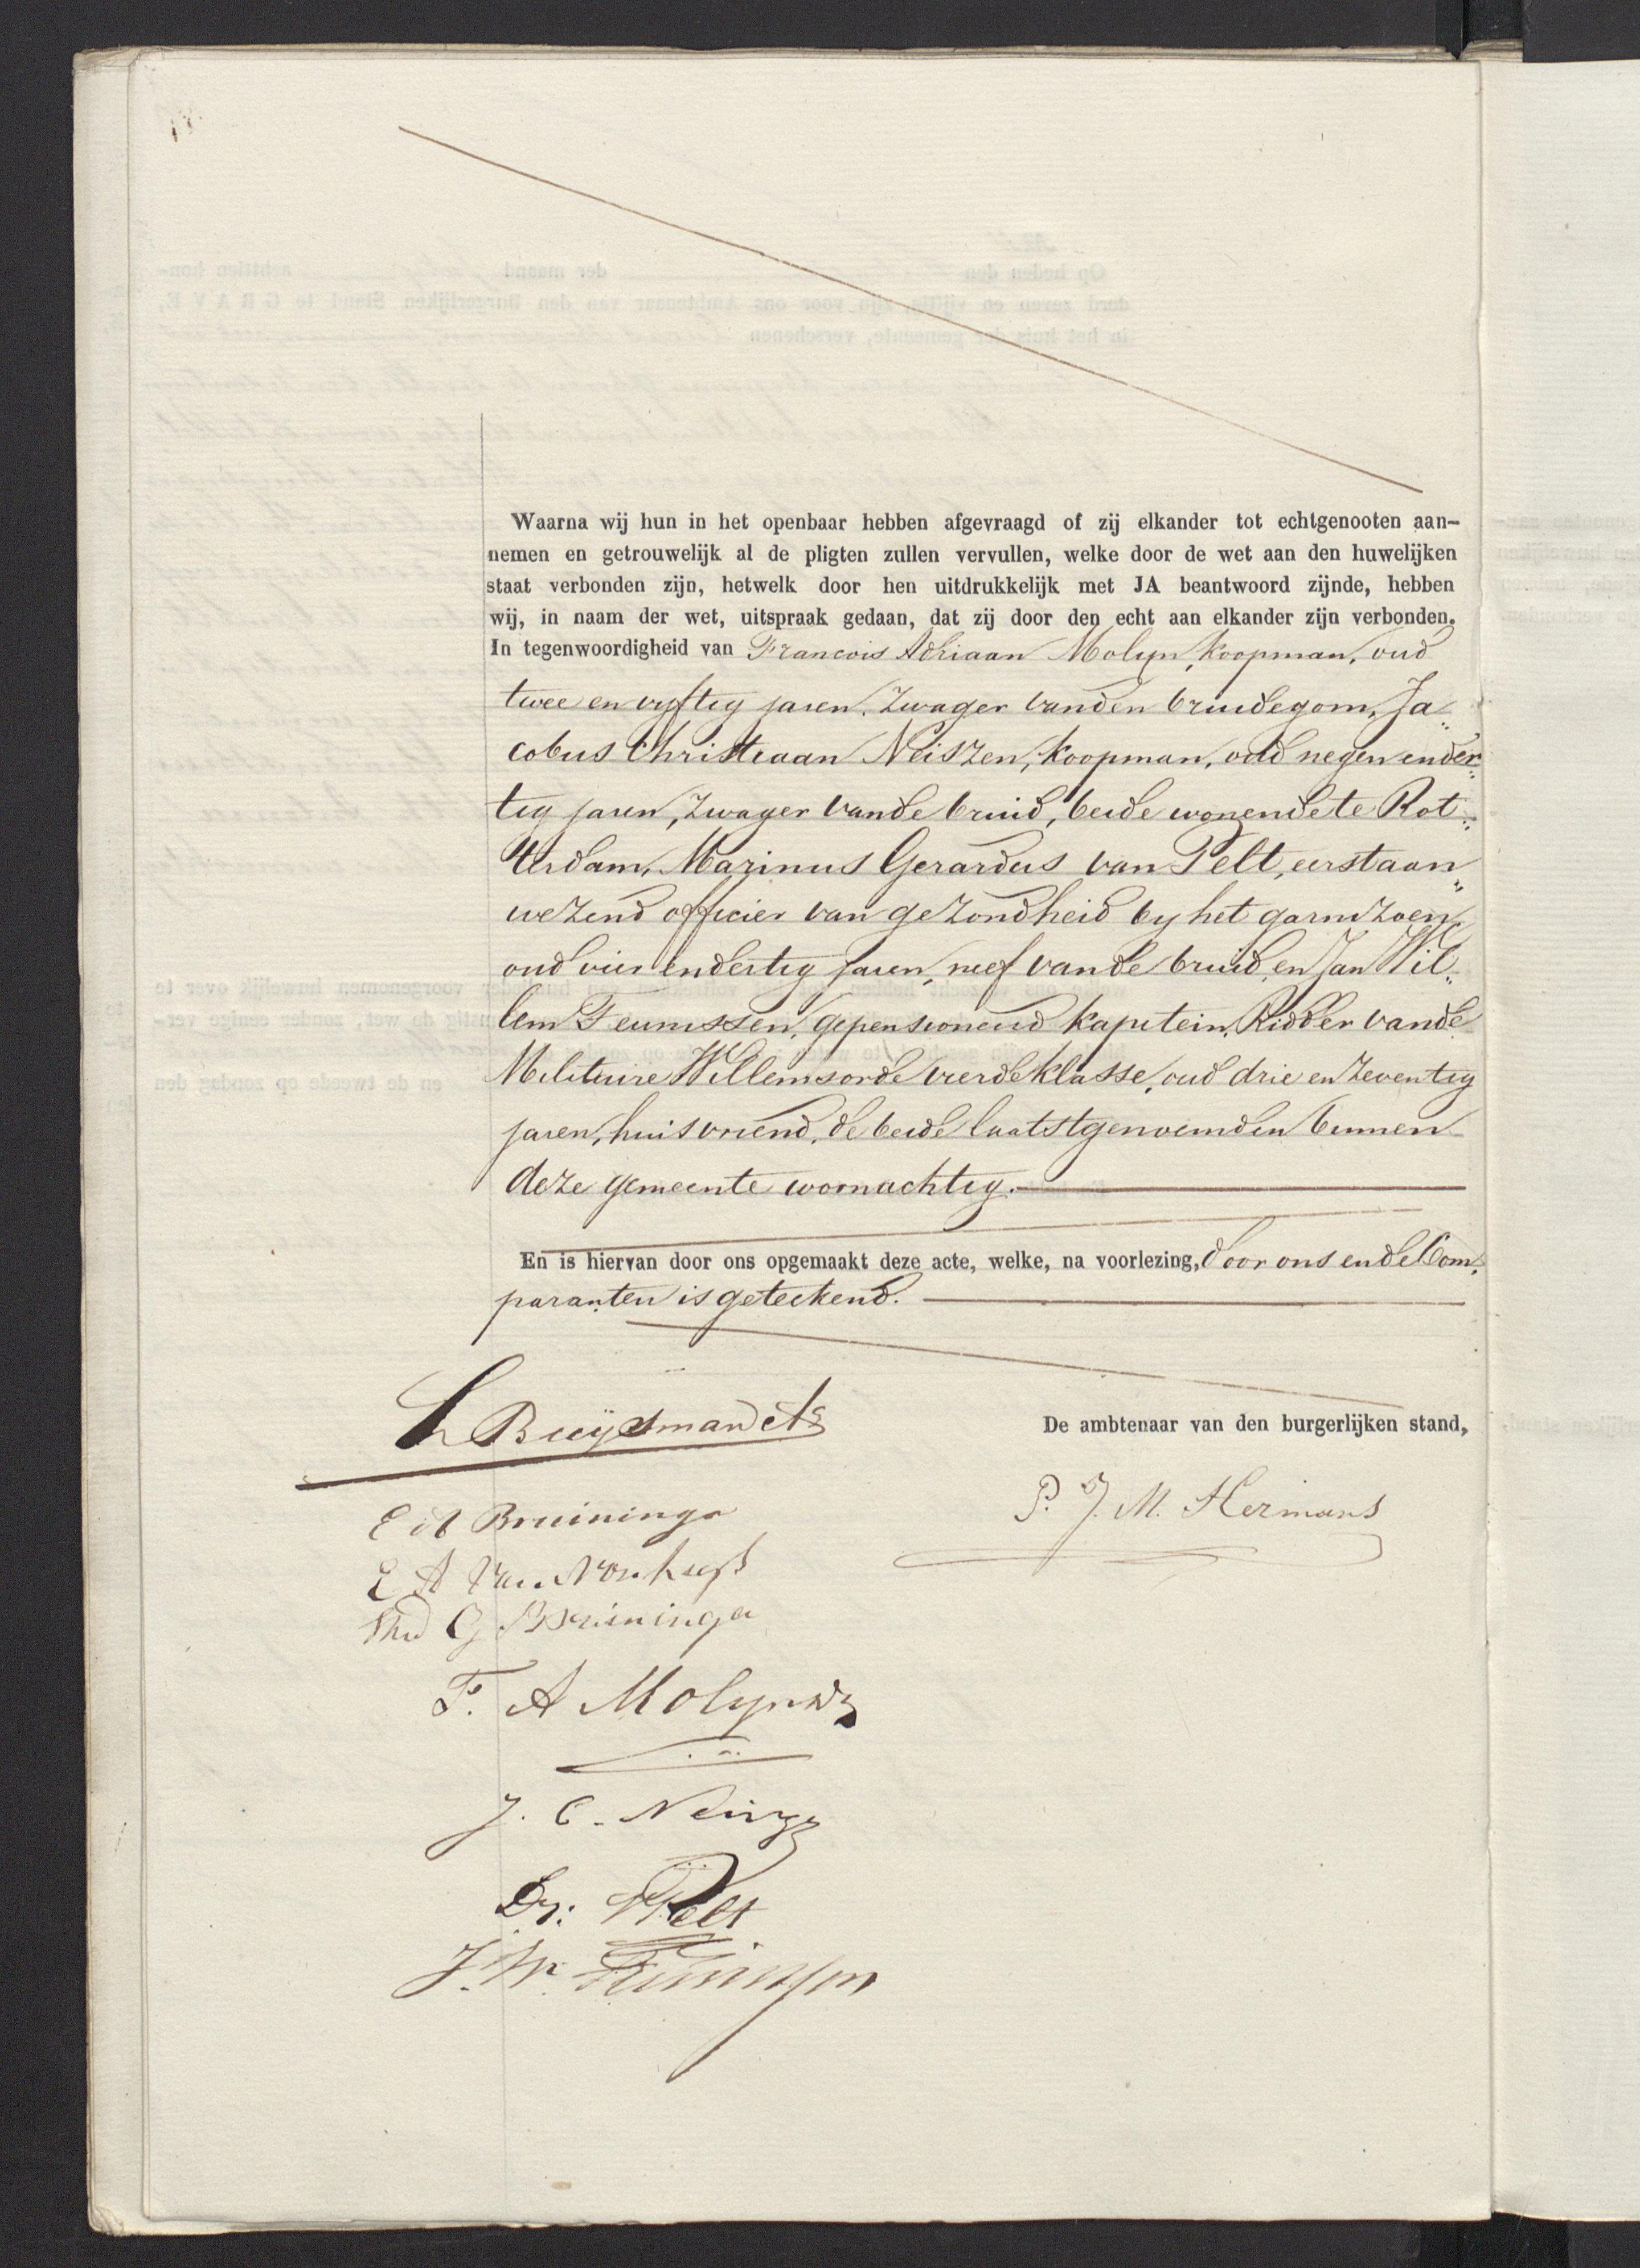 Waarna wij hun in het openbaar hebben afgevraagd of zij elkander tot echtgenooten aan-
nemen en getrouwelijk al de pligten zullen vervullen, welke door de wet aan den huwelijken
staat verbonden zijn, hetwelk door hen uitdrukkelijk met JA beantwoord zijnde, hebben
wij, in naam der wet, uitspraak gedaan, dat zij door den echt aan elkander zijn verbonden.
In tegenwoordigheid van Francois Adriaan Molyn, koopman, oud
twee en vyftig jaren, zwager van den bruidegom, Ja„
cobus Christiaan Neiszen, koopman, oud negen en der„
tig jaren, zwager van de bruid, beide wonende te Rot„
terdam, Marinus Gerardus van Pelt, eerstaan„
wezend officier van gezondheid by het garnizoen,
oud vier en dertig jaren, neef van de bruid, en Jan Wil„
lem Teunissen, gepensioneerd kapitein, Ridder van de
Militaire Willemsorde vierde klasse, oud drie en zeventig
jaren, huisvriend, de beide laatstgenoemden binnen
deze gemeente woonachtig.
En is hiervan door ons opgemaakt deze acte, welke, na voorlezing, door ons en de Com„
paranten is geteekend.
L Buijsman
De ambtenaar van den burgerlijken stand,
P. J. M. Hermans
Bruininga
E A Van
G Bruininga
F. A Molyn
J. C. Neisz
Dr: Pelt
J. W. Teunissen